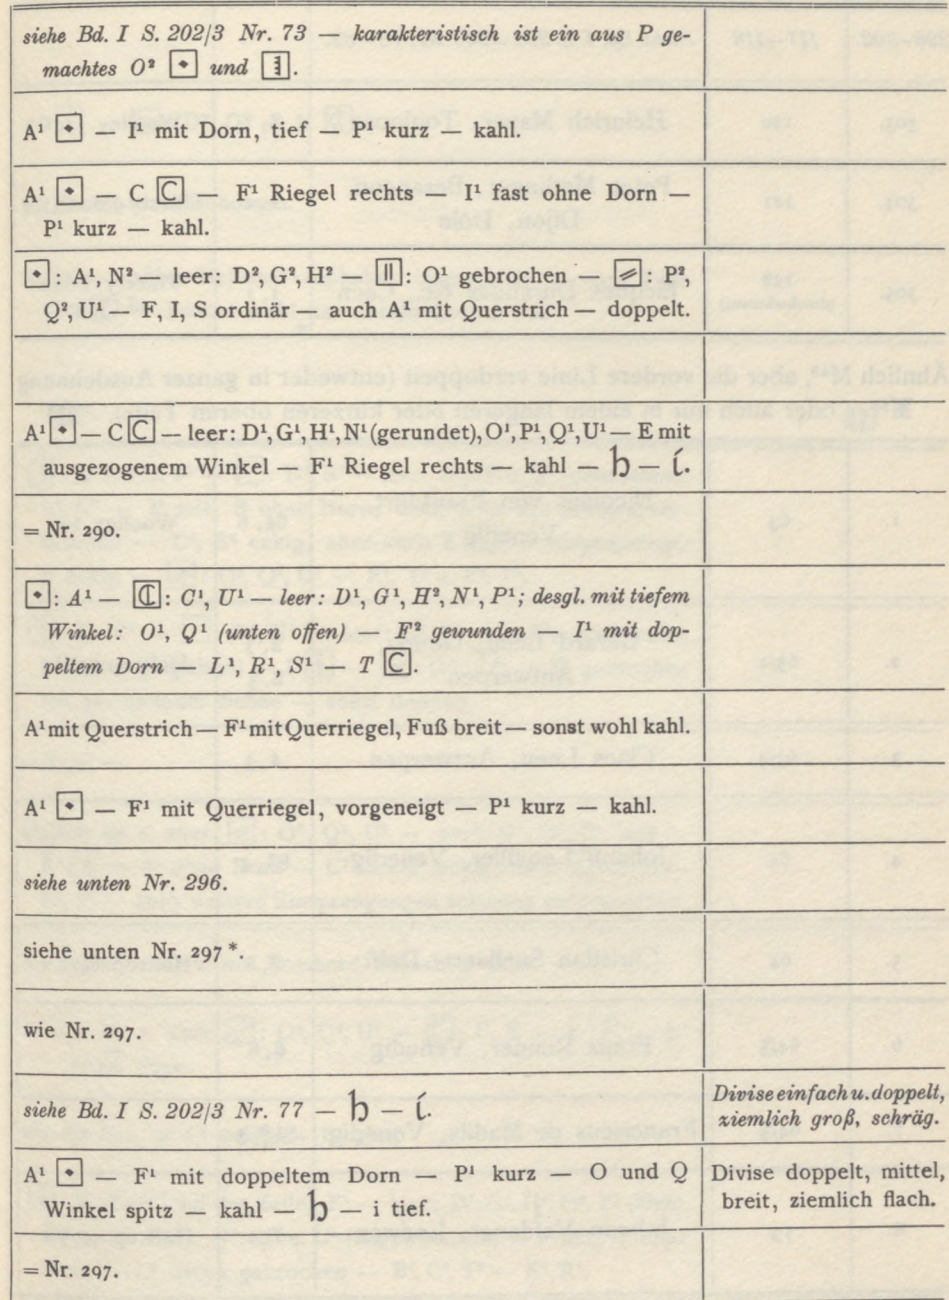 siehe Bd. I S. 202/3 Nr. 73 — karakteristisch ist ein aus P ge-
machtes O² und .
A¹ — I¹ mit Dorn, tief — P¹ kurz — kahl.
A¹ — C C — F¹ Riegel rechts — I¹ fast ohne Dorn —
P¹ kurz — kahl.
: A¹, N² — leer: D², G², H² — : O¹ gebrochen — : P²,
Q², U¹ — F, I, S ordinär — auch A¹ mit Querstrich — doppelt.
A¹ — C C — leer: D¹, G¹, H¹, N¹ (gerundet), O¹, P¹, Q¹, U¹ — E mit
ausgezogenem Winkel — F¹ Riegel rechts — kahl — h — í.
= Nr. 290.
: A¹ — : C¹, U¹ — leer: D¹, G¹, H², N¹, P¹; desgl. mit tiefem
Winkel: O¹, Q¹ (unten offen) — F² gewunden — I¹ mit dop-
peltem Dorn — L¹, R¹, S¹ — T C.
A¹ mit Querstrich — F¹ mit Querriegel, Fuß breit — sonst wohl kahl.
A¹ — F¹ mit Querriegel, vorgeneigt — P¹ kurz — kahl.
siehe unten Nr. 296.
siehe unten Nr. 297*.
wie Nr. 297.
siehe Bd. I S. 202/3 Nr. 77 — h — í.
Divise einfach u. doppelt,
ziemlich groß, schräg.
A¹ — F¹ mit doppeltem Dorn — P¹ kurz — O und Q
Winkel spitz — kahl — h — i tief.
Divise doppelt, mittel,
breit, ziemlich flach.
= Nr. 297.